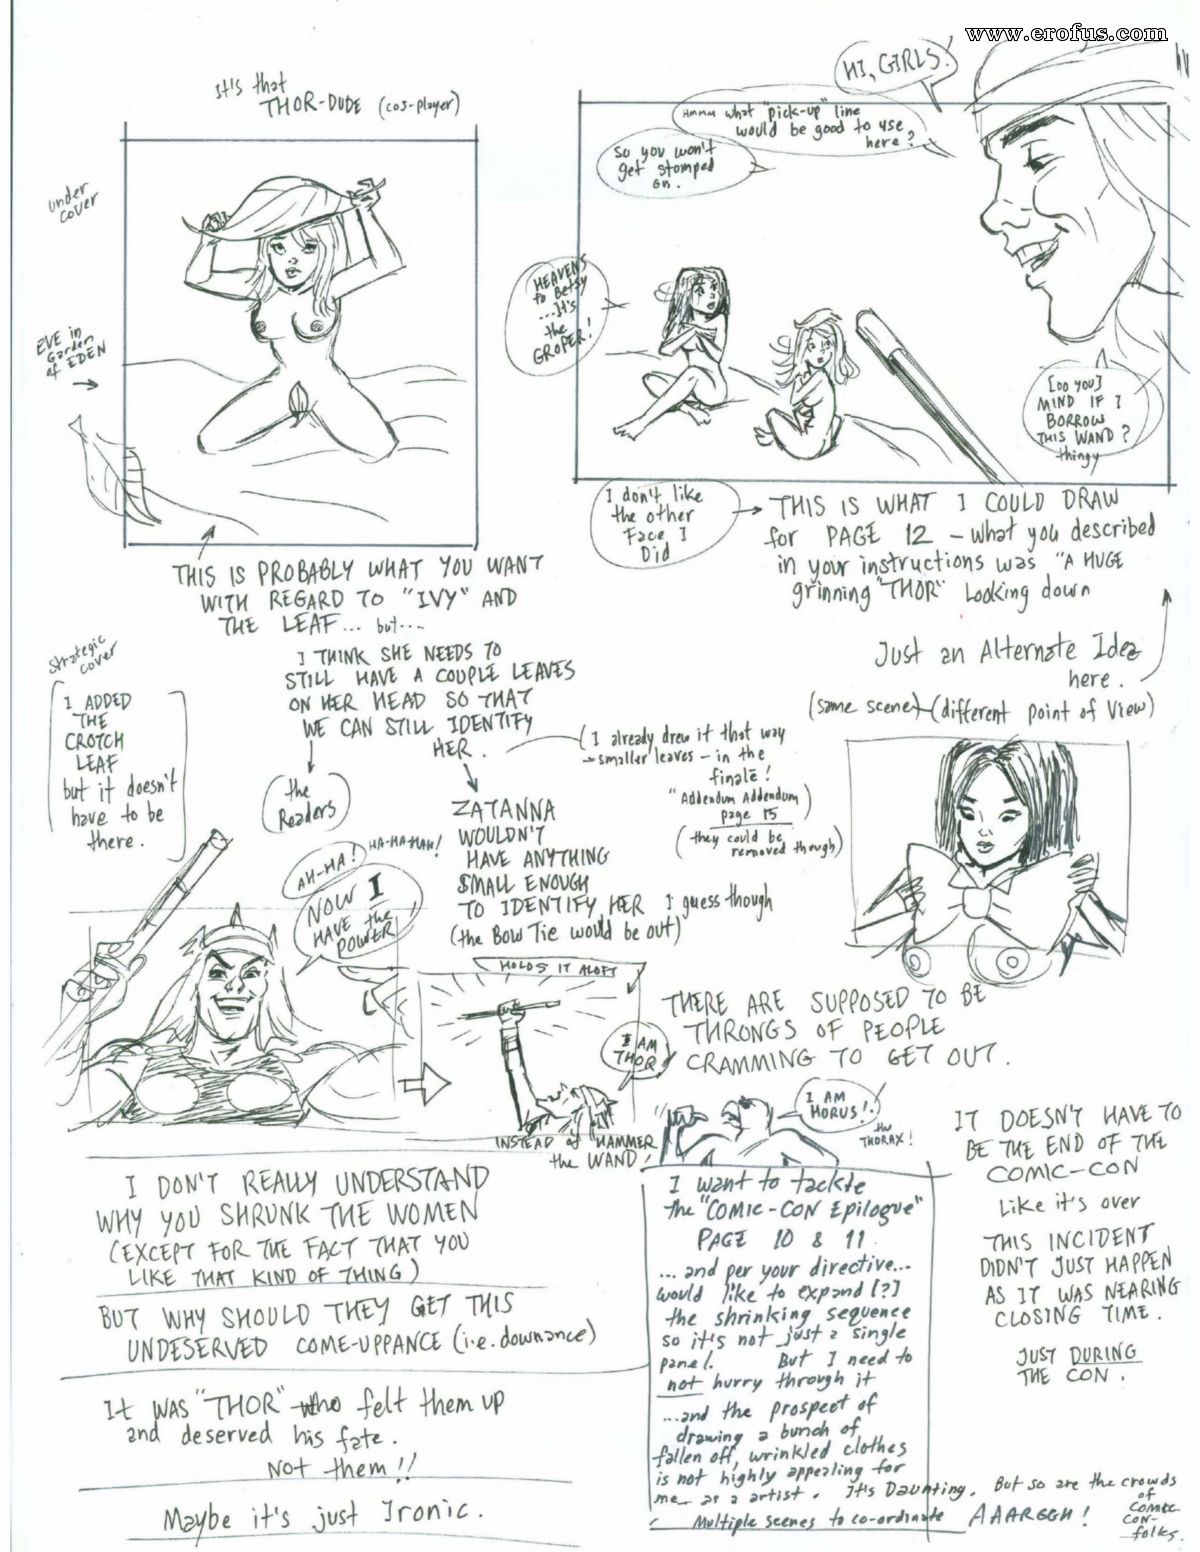 www.erofus.com
It's that
THOR-DUDE (cos-player)
under
cover
EVE in
Garden
of EDEN
HI, GIRLS!
HMMM what "pick-up" line
would be good to use
here?
So you won't
get stomped
on.
HEAVENS
to Betsy
...It's
the
GROPER!
[DO YOU]
MIND IF I
BORROW
THIS WAND?
thingy
I don't like
the other
Face I
Did
THIS IS WHAT I COULD DRAW
for PAGE 12 - What you described
in your instructions was "A HUGE
grinning "THOR" Looking down
Just an Alternate Idea
here.
(same scene) (different point of View)
THIS IS PROBABLY WHAT YOU WANT
WITH REGARD TO "IVY" AND
THE LEAF... but...
I THINK SHE NEEDS TO
STILL HAVE A COUPLE LEAVES
ON HER HEAD SO THAT
WE CAN STILL IDENTIFY
HER.
(the
Readers)
strategic
cover
I ADDED
THE
CROTCH
LEAF
but it doesn't
have to be
there.
(I already drew it that way
smaller leaves - in the
finale!
"Addendum Addendum)
page 15
(they could be
removed though)
ZATANNA
WOULDN'T
HAVE ANYTHING
SMALL ENOUGH
TO IDENTIFY HER I guess though
(the Bow Tie would be out)
AH-HA! HA-HA-HAH!
NOW I
HAVE the
POWER
HOLDS IT ALOFT
I AM
THOR!
INSTEAD of HAMMER
the WAND!
THERE ARE SUPPOSED TO BE
THRONGS OF PEOPLE
CRAMMING TO GET OUT.
I AM
HORUS!
the
THORAX!
IT DOESN'T HAVE TO
BE THE END OF THE
COMIC-CON
Like it's over
THIS INCIDENT
DIDN'T JUST HAPPEN
AS IT WAS NEARING
CLOSING TIME.
JUST DURING
THE CON.
I DON'T REALLY UNDERSTAND
WHY YOU SHRUNK THE WOMEN
(EXCEPT FOR THE FACT THAT YOU
LIKE THAT KIND OF THING)
BUT WHY SHOULD THEY GET THIS
UNDESERVED COME-UPPANCE (i.e. downance)
It WAS "THOR" who felt them up
and deserved his fate.
Not them!!
Maybe it's just Ironic.
I want to tackle
the "COMIC-CON Epilogue"
PAGE 10 & 11
...and per your directive...
would like to expand [?]
the shrinking sequence
so it's not just a single
panel. But I need to
not hurry through it
...and the prospect of
drawing a bunch of
fallen off, wrinkled clothes
is not highly appealing for
me as a artist. It's Daunting. But so are the crowds
of
Comic
Con-
folks.
Multiple scenes to co-ordinate AAARGGH!